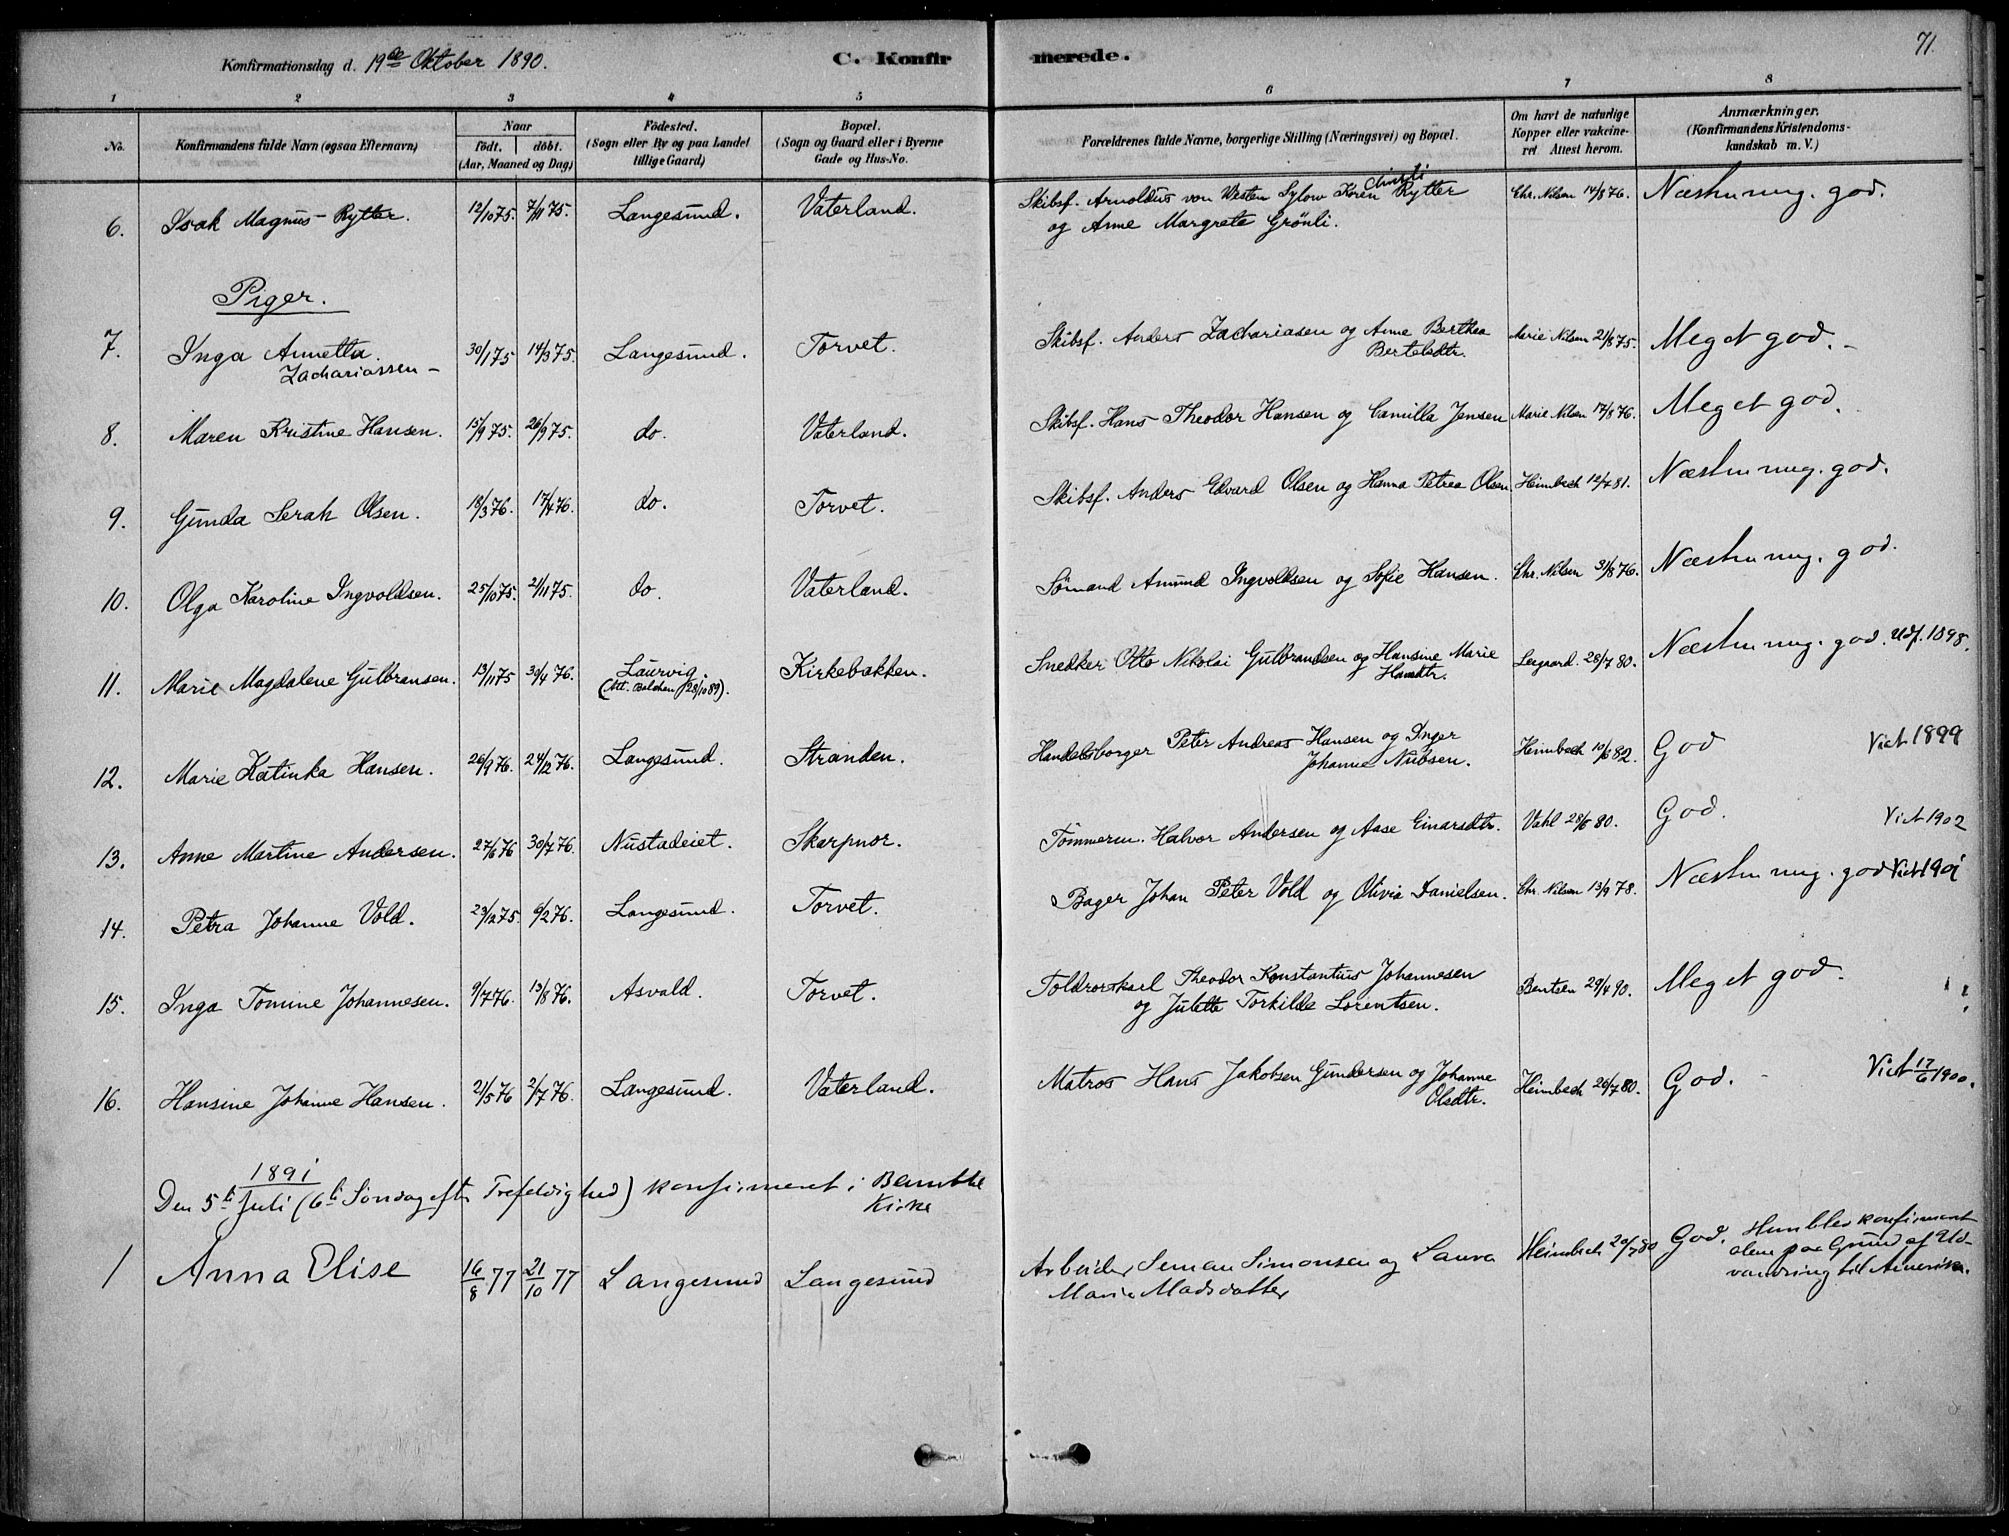 71.
Konfirmationsdag d. 19de Oktober 1890. C. Konfirmerede.
1 2 3 4 5 6 7 8
No. Konfirmandens fulde Navn (ogsaa Efternavn) Naar födt. döbt. (Aar, Maaned og Dag) Födested. (Sogn eller By og paa Landet tillige Gaard) Bopæl. (Sogn og Gaard eller i Byerne Gade og Hus-No. Forældrenes fulde Navne, borgerlige Stilling (Næringsvei) og Bopæl. Om havt de naturlige Kopper eller vakcineret Attest herom. Anmærkninger. (Konfirmandens Kristendomskundskab m. V.)
6. Isak Magnus Rytter. 12/10 75. 7/11 75. Langesund. Vaterland. Skibsf. Arnoldus von Westen Sylow Koren Rytter Chr. Nilsen 14/8 76. Næsten meg. god.
og Anne Margrete Grönli.
Piger.
7. Inga Annetta 30/1 75 14/3 75. Langesund. Torvet. Skibsf. Anders Zachariasen og Anne Berthea Marie Nilsen 21/8 75. Meget god.
Zachariassen Bertelsdtr.
8. Maren Kristine Hansen. 15/9 75. 26/9 75. do. Vaterland. Skibsf. Hans Theodor Hansen og Camilla Jensen Marie Nilsen 17/8 76. Meget god.
9. Gunda Serah Olsen. 18/3 76. 17/4 76. do. Torvet. Skibsf. Anders Edvard Olsen og Hanna Petrea Olsen Heimbech 12/7 81. Næsten meg. god.
10. Olga Karoline Ingvoldsen. 25/10 75. 21/11 75. do. Vaterland. Sömand Amund Ingvoldsen og Sofie Hansen. Chr. Nilsen 31/8 76. Næsten meg. god.
11. Marie Magdalene Gulbransen. 13/11 75 30/4 76. Laurvig. Kirkebakken. Snedker Otto Nikolai Gulbrandsen og Hansine Marie 28/7 80. Næsten meg. god. Udf. 1898.
(Att. Balchen 28/10 89). Hansdtr.
12. Marie Katinka Hansen. 26/9 76. 24/12 76. Langesund. Stranden. Handelsborger Peter Andreas Hansen og Inger Heimbech 10/6 82. God Viet 1899
Johanne Nubsen.
13. Anne Martine Andersen. 27/6 76 30/7 76. Nustadeiet. Skarpnor. Tömmerm. Halvor Andersen og Aase Einarsdtr. Vahl 28/6 80. God. Viet 1902
14. Petra Johanne Vold. 23/12 75. 6/2 76. Langesund. Torvet. Bager Johan Peter Vold og Olivia Danielsen. Chr. Nilsen 13/9 78. Næsten meg. god Viet 1901
15. Inga Tomine Johannesen. 9/7 76. 13/8 76. Asvald. Torvet. Toldrorskarl Theodor Konstantius Johannesen Bentsen 29/4 90. Meget god.
og Julette Torkilda Lorentsen.
16. Hansine Johanne Hansen. 21/5 76 2/7 76. Langesund. Vaterland. Matros Hans Jakobsen Gundersen og Johanne Heimbech 26/7 80. God. Viet 17/6 1900.
Olsdtr.
1891
Den 5te Juli (6te Söndag efter Trefoldighed) konfirmeret i Bamble
Kirke
1 Anna Elise 16/8 77 21/10 77 Langesund Langesund Arbeider Seman Simonsen og Laura Heimbech 20/7 80 God. Hun blev konfirmert
Marie Madsdatter alene paa Grund af Ud-
vandring til Amerika.